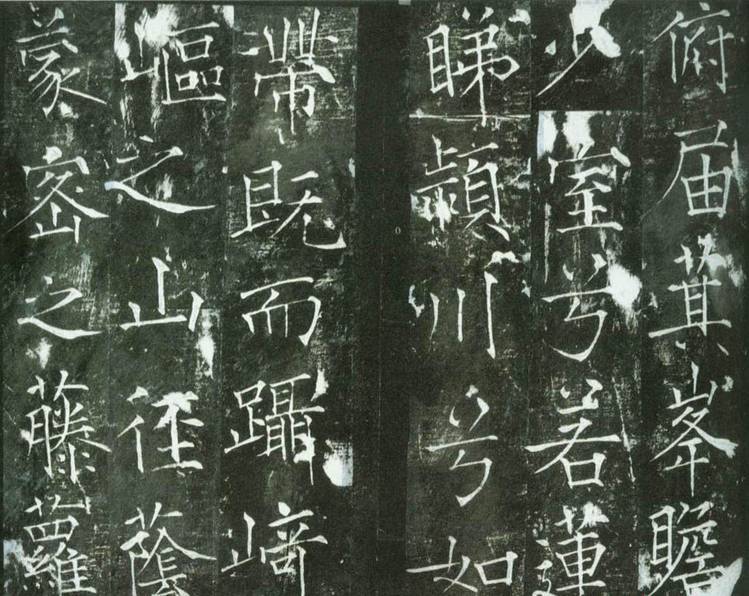 俯届箕峯瞻
少室兮若蓮
睇潁川兮如
帶既而躡崎
嶇之山徑蔭
蒙密之藤蘿